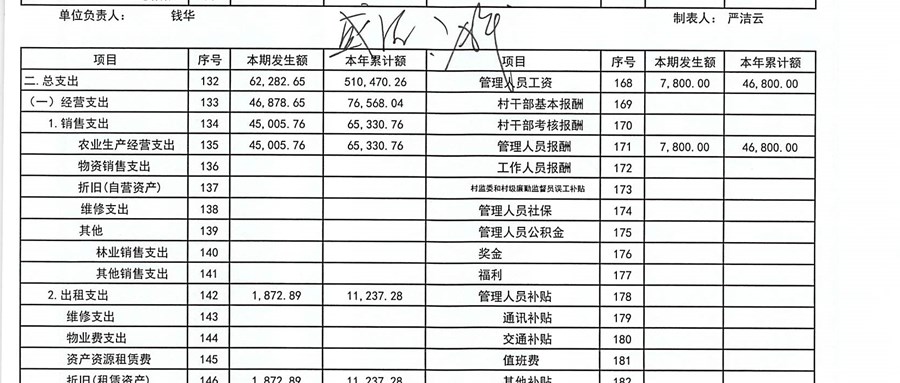 单位负责人： 钱华 制表人： 严洁云
项目 序号 本期发生额 本年累计额 项目 序号 本期发生额 本年累计额
二.总支出 132 62,282.65 510,470.26 管理人员工资 168 7,800.00 46,800.00
（一）经营支出 133 46,878.65 76,568.04 村干部基本报酬 169
1.销售支出 134 45,005.76 65,330.76 村干部考核报酬 170
农业生产经营支出 135 45,005.76 65,330.76 管理人员报酬 171 7,800.00 46,800.00
物资销售支出 136 工作人员报酬 172
折旧(自营资产) 137 村监委和村级廉勤监督员误工补贴 173
维修支出 138 管理人员社保 174
其他 139 管理人员公积金 175
林业销售支出 140 奖金 176
其他销售支出 141 福利 177
2.出租支出 142 1,872.89 11,237.28 管理人员补贴 178
维修支出 143 通讯补贴 179
物业费支出 144 交通补贴 180
资产资源租赁费 145 值班费 181
折旧(租赁资产) 146 1,872.89 11,237.28 其他补贴 182